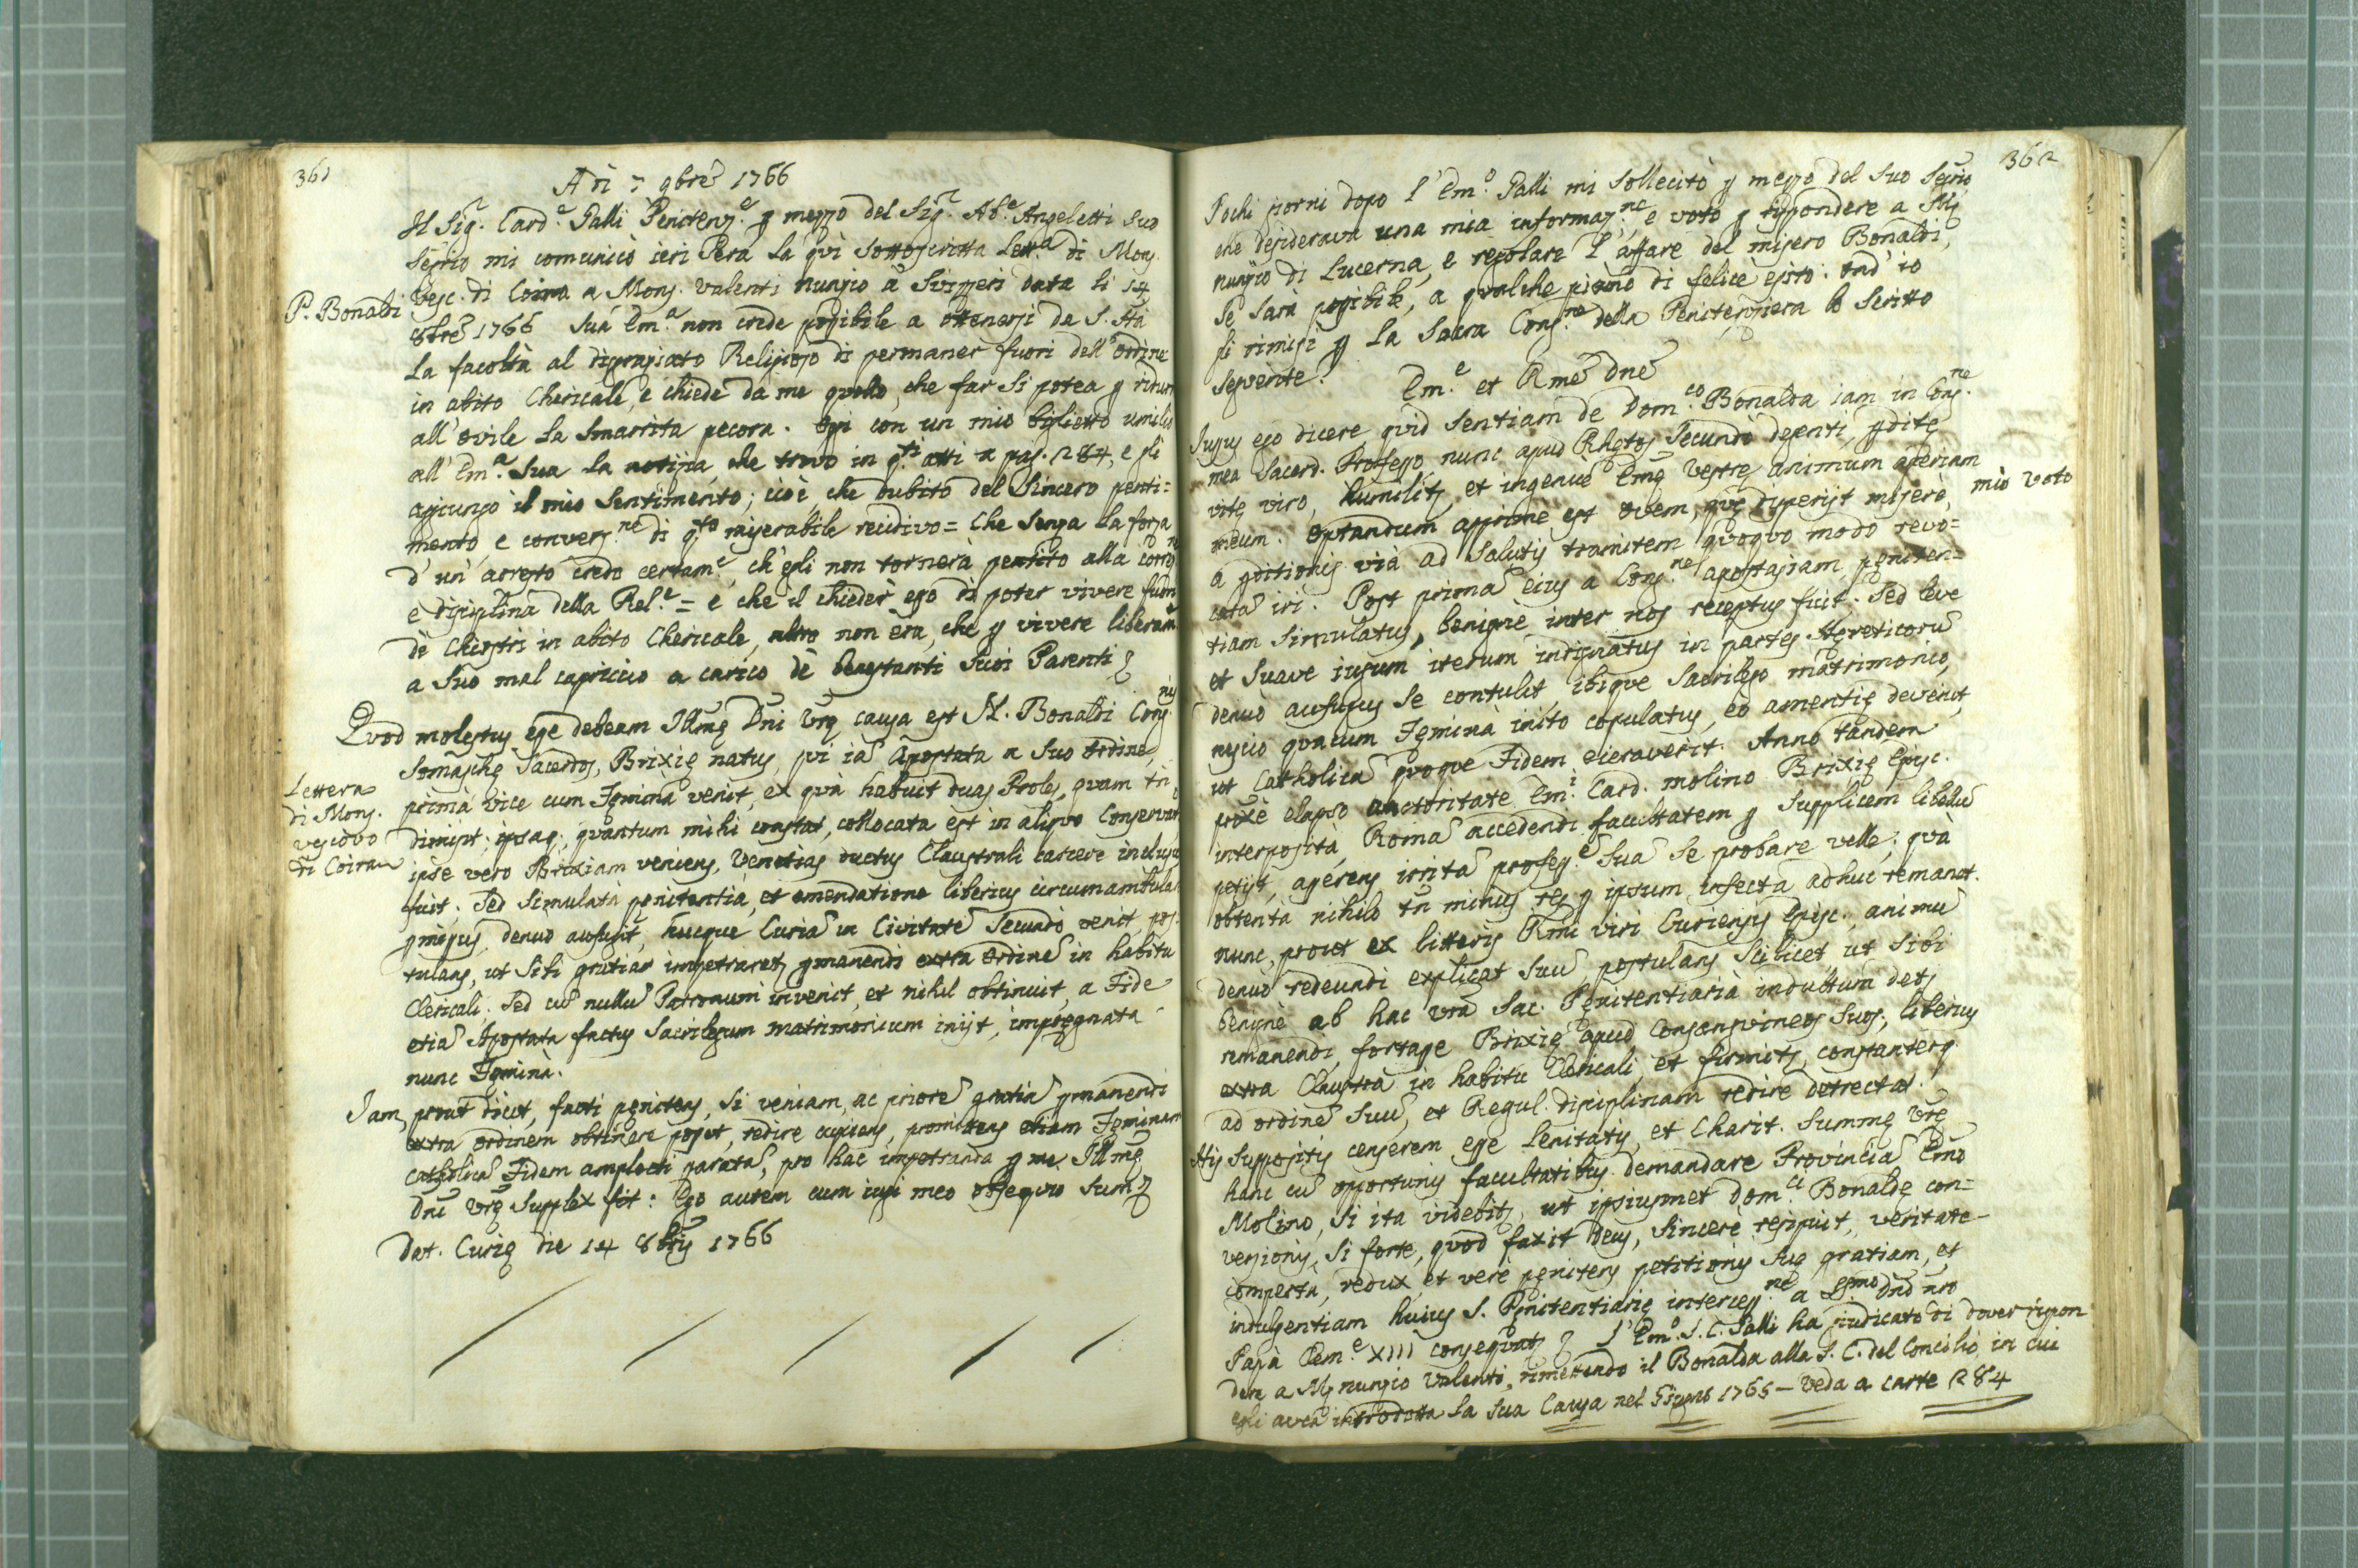 361
Adì 7 9bre 1766
Il Sig.r Card.e Galli Penitenz.e p mezzo del Sig.r Ab.e Angeletti Suo
Segrio mi comunicò ieri sera la quì sottoscritta Lett.a di Mons.
P. Bonaldi
Vesc. di Coira a Mons. Valenti nunzio a Svizzeri data li 14
8bre 1766 Sua Em.a non crede possibile a ottenersi da S. Stà
la facoltà al disgraziato Religioso di permaner fuori dell'ordine
in abito Chericale, e chiede da me quello, che far si potea p ridurre
all'ovile la smarrita pecora. Oggi con un mio biglietto umilio
all'Em.a Sua la notizia, che trovo in q.ti atti a pag. 284, e gli
aggiungo il mio sentimento; cioè, che dubito del sincero penti=
mento, e convers.ne di q.to miserabile recidivo= Che senza la forza
d'un'arresto credo certam.e, ch'egli non tornerà pentito alla
e disciplina della Rel.e = e che il chieder ego di poter vivere fuori
dè Chiostri in abito Chericale, altro non era, che p vivere
a suo mal capriccio a carico dè benestanti suoi Parenti
Quod molestus esse debeam Illmę Dni Vrę causa est N. Bonaldi Cong.nis
Somaschę Sacerdos, Brixię natus, qui ia Apostata a suo ordine,
Lettera
di Mons.
vescovo
di Coira
primà vice cum Fęminà venit, ex quà habuit duas Proles, quam tn
dimisit; ipsaq; quantum mihi constat, collocata est in aliquo
ipse vero Brixiam veniens, Venetias ductus Claustrali carcere inclusus
fuit. Sed simulatà pęnitentià, et emendatione liberius
pmissus denuo aufugit, hucque Curia in Civitate secundò venit, pos=
tulans, ut sibi gratiae impetraret pmanendi extra ordine in habitu
Clericali. Sed cu nullu Patronum invenit, et nihil obtinuit, a Fide
etia Apostata factus sacrilegum matrimonium iniit, impręgnata
nunc Fęminà.
Iam, prout dicit, facti pęnitens, si veniam, ac priore gratia pmanendi
extra ordinem obtinere posset, redire cupiens, promittens etiam Fęminam
catholica Fidem amplecti parata, pro hac impetranda p me Illmę
Dni Vrę supplex fit: Ego autem cum iugi meo obsequio sum
Dat. Curię die 14 8bris 1766
362
Pochi giorni dopo l'Em.o Galli mi sollecitò p mezzo del suo Segrio,
che desiderava una mia informaz.ne, e voto p rispondere a Mj
nunzio di Lucerna, e regolare l'affare del misero Bonaldi,
se sarà possibile, a qualche piano di felice esito: ond'io
gli rimisi p la Sacra Cong.ne della Penitenzieria lo scritto
seguente.
Em.e et Rme Dne
Iussus ego dicere quid sentiam de Dom.co Bonalda iam in Cong.ne
mea Sacerd. Professo, nunc apud Rhętos secundò degenti, pditę
vitę viro, humilitr, et ingenuè Emę Vestrę animum aperiam
mio voto
meum. Optandum apprime est ovem, quę disperiit miserè,
a pditionis vià ad salutis tramitem quoquo modo revo=
cata iri. Post prima eius a Cong.ne apostasiam pęniten=
tiam simulatus, benignè inter nos receptus fuit. Sed leve
et suave iugum iterum indignatus in partes Hęreticoru
denuò aufugus se contulit ibique sacrilego matrimonio,
nescio quacum Fęminà inito copulatus, eo amentię devenit,
ut Catholica quoque Fidem eieraverit. Anno tandem
proxè elapso auctoritate Em.i Card. Molino Brixię Episc.
interposità, Roma accedendi facultatem p supplicem libellu
petiit, asserens irrita profess.e sua se probare velle; quà
obtentà nihilo tn minus res p ipsum infecta adhuc remanet.
nunc, prout ex litteris Rmi viri Curiensis Episc., animu
denuo redeundi explicat suu, postulans scilicet, ut sibi
benignè ab hac vra Sac. Pęnitentiarià indultum detr
remanendi, fortasse Brixię apud consanguineos suos, liberius
extra Claustra in habitu Clericali, et firmitr, constanterq
ad ordine suu, et Regul. disciplinam redire detrectat.
His suppositis censerem esse lenitatis, et Charit. summę Vrę
hanc cu opportunis facultatibus demandare Provincia Emo
Molino, si ita videbitr, ut ipsiusmet Dom.ci Bonaldę con=
versionis, si forte, quod faxit Deus, sincerè resipuit, veritate
comperta, redux, et verè pęnitens petitionis suę gratiam, et
indulgentiam huius S. Pęnitentiarię intercess.ne a Ssmo Dno nro
Papà Clem.e XIII consequatr L'Em.o S. C. Galli ha giudicato di dover rispon
dere a Mj nunzio Valenti, rimettendo il Bonalda alla S. C. del Concilio, in cui
egli avea introdotta la sua Causa nel Giugno 1765 – Veda a carte 284